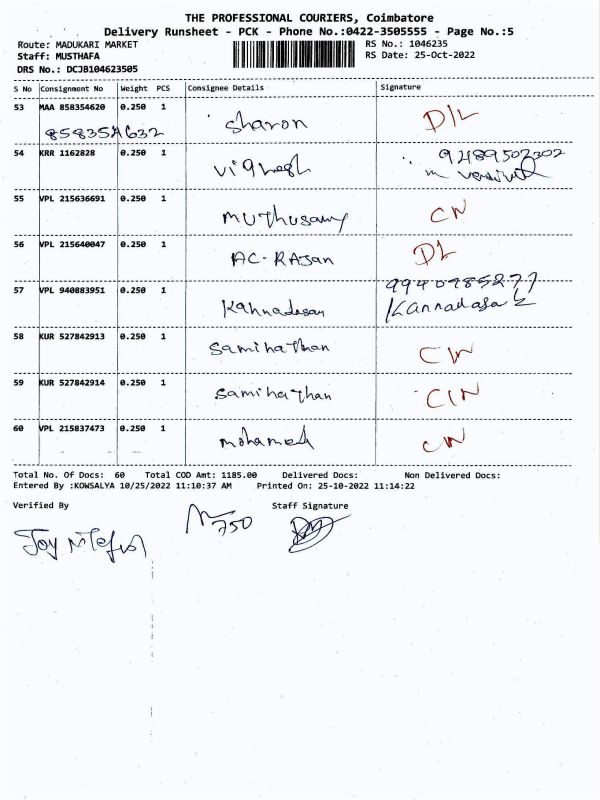 THE PROFESSIONAL COURIERS, Coimbatore
Delivery Runsheet - PCK - Phone No.:0422-3505555 - Page No.:5
Route: MADUKARI MARKET RS No.: 1046235
Staff: MUSTHAFA RS Date: 25-Oct-2022
DRS No.: DCJB104623505
S No Consignment No Weight PCS Consignee Details Signature
53 MAA 858354620 0.250 1 Sharon D/L
858354632
54 KRR 1162828 0.250 1 Vignesh 9489502302
55 VPL 215636691 0.250 1 Muthusamy CN
56 VPL 215640047 0.250 1 AC-RAJan DL
57 VPL 940883951 0.250 1 Kannadasan 9940985277
Kannadasa
58 KUR 527842913 0.250 1 Samihathan CIN
59 KUR 527842914 0.250 1 Samihathan CIN
60 VPL 215837473 0.250 1 mohamed CN
Total No. Of Docs: 60 Total COD Amt: 1185.00 Delivered Docs: Non Delivered Docs:
Entered By :KOWSALYA 10/25/2022 11:10:37 AM Printed On: 25-10-2022 11:14:22
Verified By Staff Signature
750
Joy